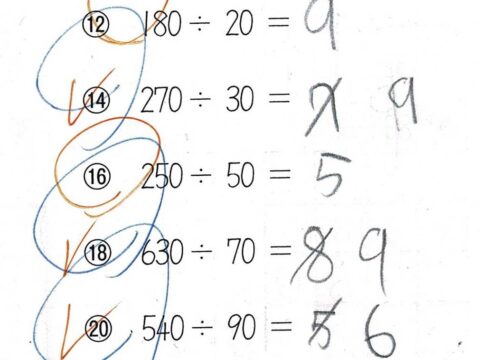 ⑫ 180 ÷ 20 = 9
⑭ 270 ÷ 30 = 7 9
⑯ 250 ÷ 50 = 5
⑱ 630 ÷ 70 = 8 9
⑳ 540 ÷ 90 = 5 6